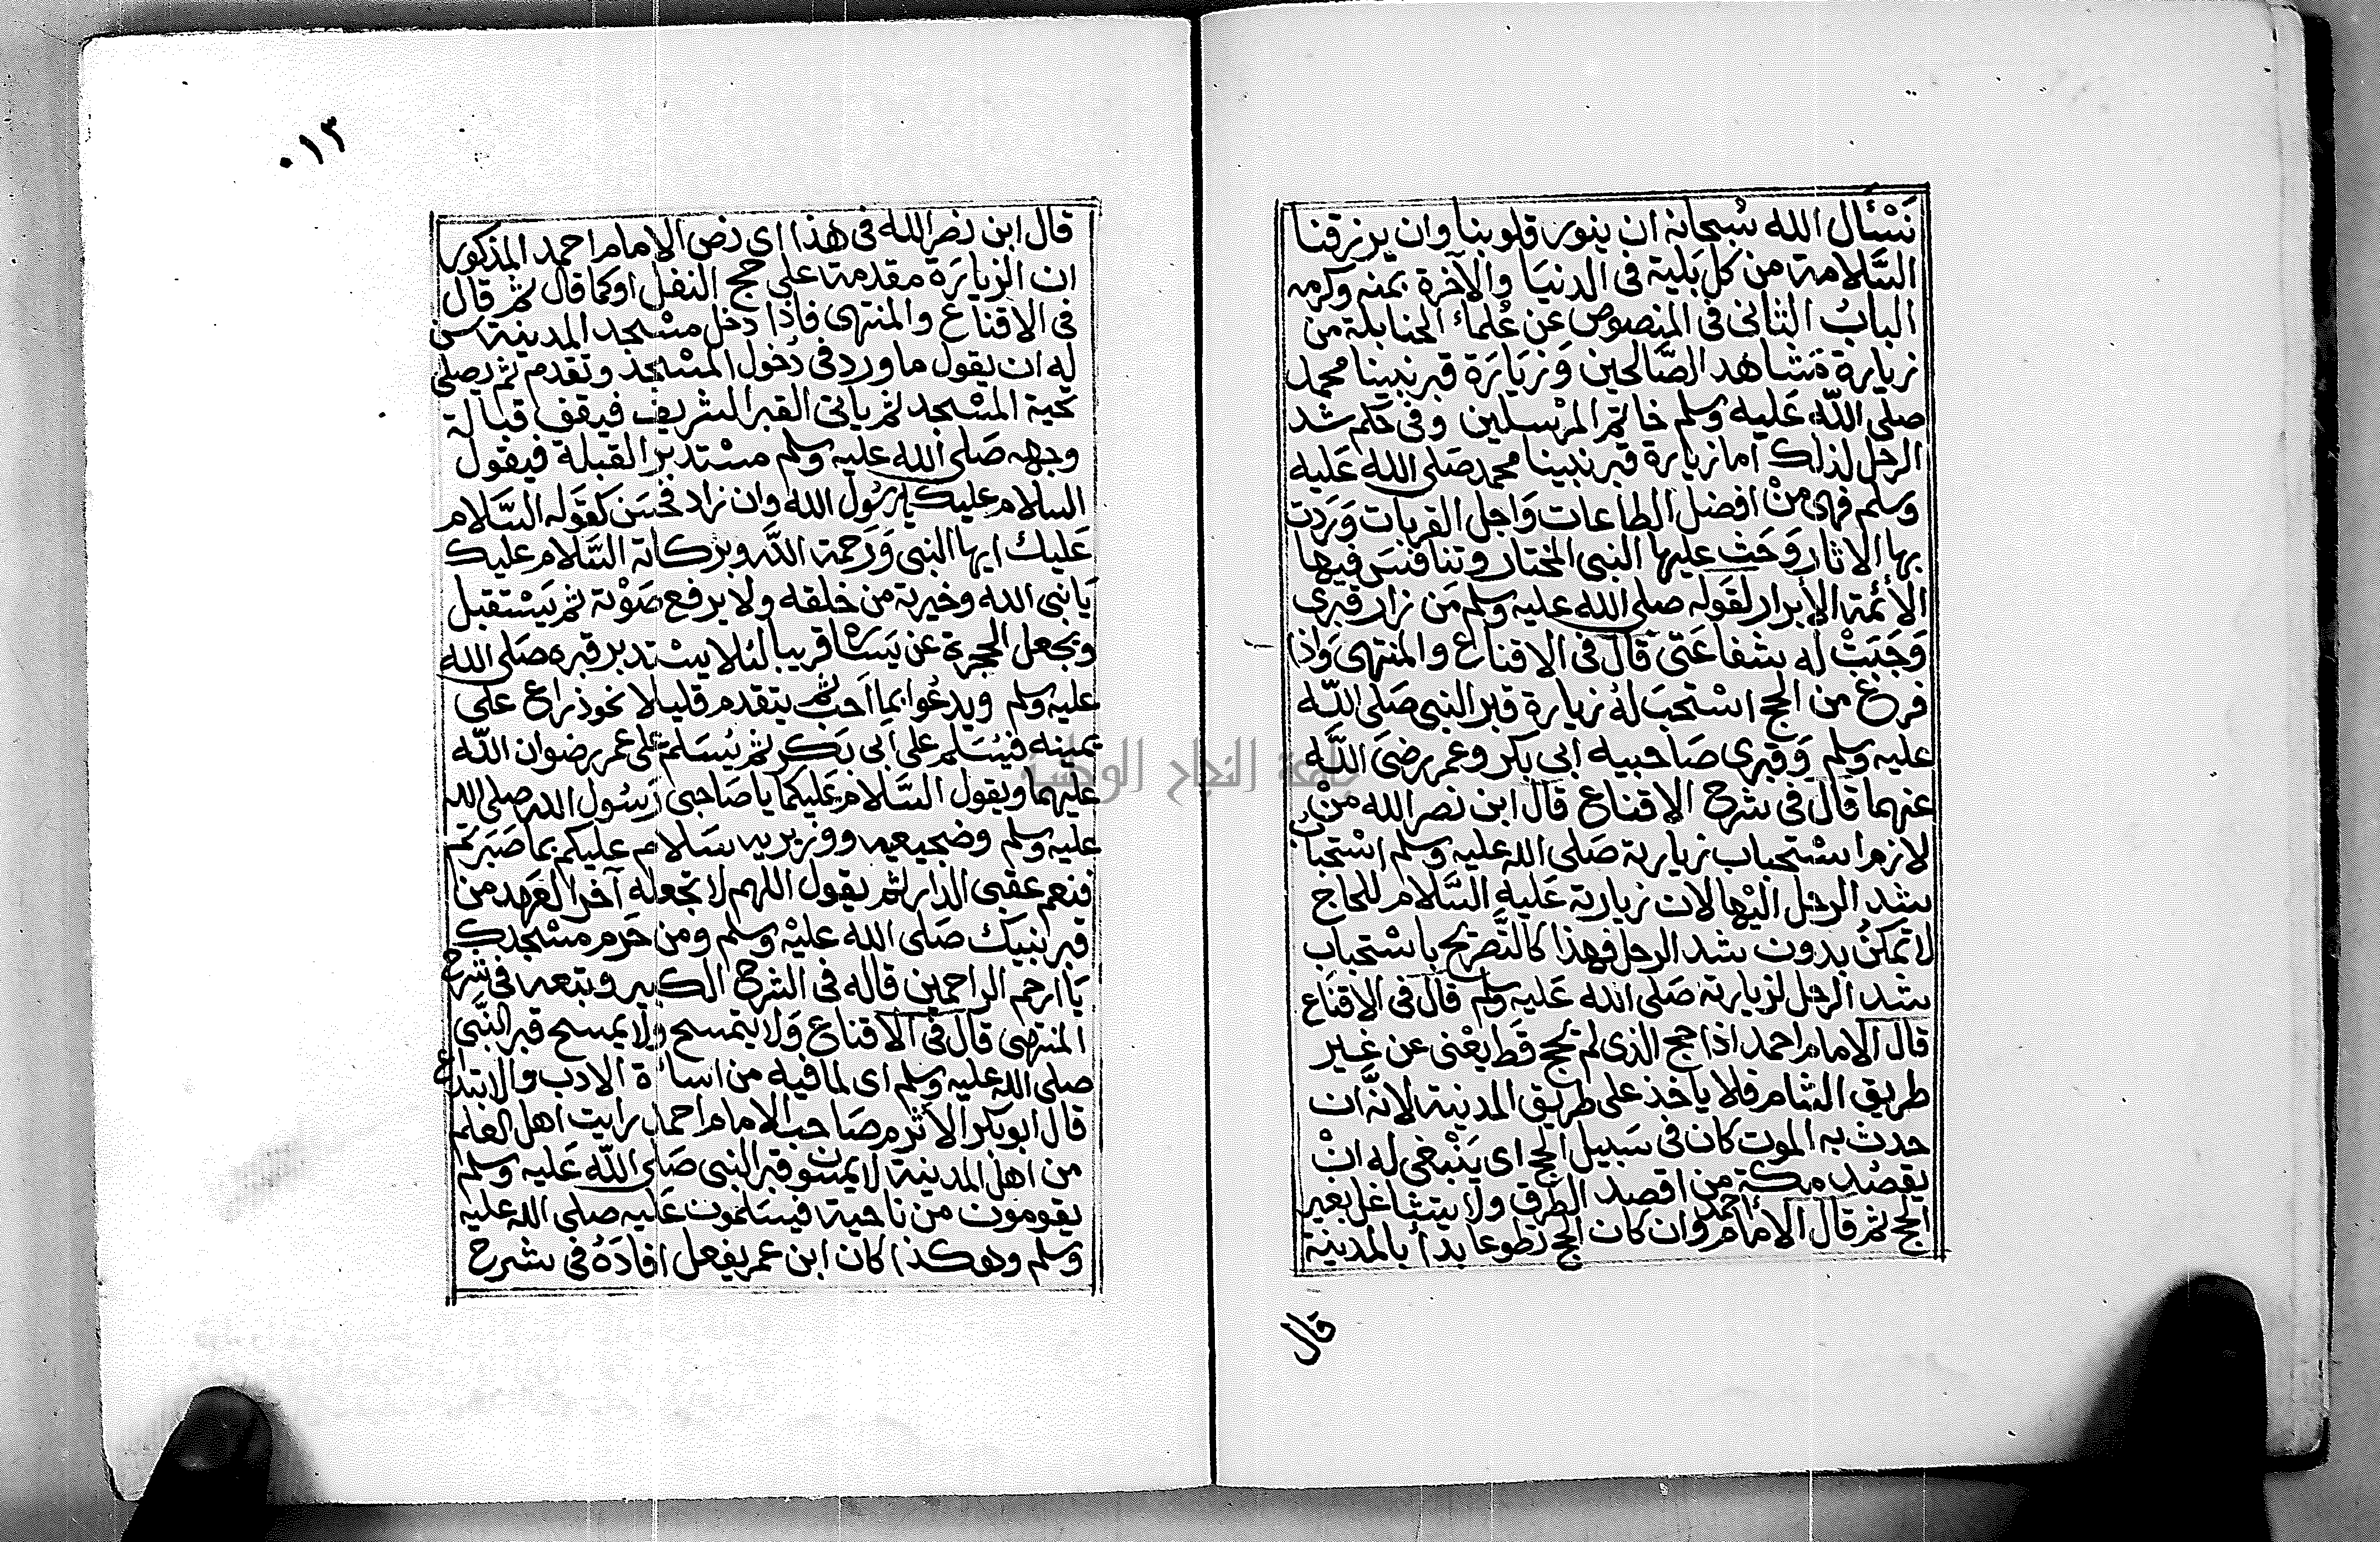 نَسْئَال الله سُبحانه ان ينور قلوبنا وان يرزقنا
السَّلامة من كل بَلية فى الدنيَا والآخرة بمنه وكرمه
البابُ الثانى فى المنصوص عن عُلماء الحنابلة من
زيارة مَشاهد الصَّالحين وَزيَارَة قبر نبينا محمد
صلى اللّه عَليه وسلم خاتم المرْسلين وفى حكم شد
الرحل لذلك اما زيارة قبر نبينا محمد صَلى الله عَليه
وسلم فهى منْ افضل الطاعات وَاجل القربات وَرَدت
بها الاثار وَحَث عليها النبى المختار وتنافسَ فيها
الأئمة الأبرار لقوله صلى الله عليه وسلم مَن زار قبرى
وَجَبَتْ له شفاعَتى قال فى الاقناع والمنتهى وَاذا
فرغ من الحج اسْتحبَ لهُ زيارة قبر النبي صَلى اللّه
عليه وسلم وَقبرى صَاحبيه ابى بكر وعمر رضىَ اللَّه
عنهما قال فى شرح الاقناع قال ابن نصر الله منْ
لازم اسْتحباب زيارته صَلى الله عليه وسلم اسْتحبابُ
شد الرحل اليْها لان زيارته عَليه السَّلام للحاج
لا تمكنُ بدون شد الرحل فهذا كالتَّصريح باسْتحباب
شد الرحل لزيارته صَلى الله عَليه وسلم قال فى الاقناع
قال الامام احمد اذا حج الذى لم يحج قَط يعْنى عن غير
طريق الشام فلا يأخذ على طريق المدينة لانهَّ ان
حدث به الموت كان فى سَبيل الحج اى يَنْبغى له انْ
يقصُد مكة من اقصد الطرق ولا يتشاغل بغير
الحج ثم قال الأمام أحمد وان كان الحج تطوعا بدأ بالمدينة
قال
٠١٣
قال ابن نصر الله فى هذا اى نص الامام احمد المذكور
ان الزيارَة مقدمة على حج النفل اوكما قال ثم قال
فى الاقناع والمنتهى فاذا دخل مسْجد المدينة سن
له ان يقول ما ورد فى دُخول المسْجد وتقدم ثم يصلى
تحية المسْجد ثم ياتى القبر الشريف فيقف قبالة
وجهه صَلى الله عليه وسلم مسْتدبر القبلة فيقول
السلام عليك يا رسُول الله وان زاد فحسَن كقوله السَّلام
عَليك ايها النبى وَرَحمة اللَّه وبركاته السَّلام عليك
يَا نبى الله وخيرته من خلقه ولا يرفع صَوْته ثم يَسْتقبل
ويجعل الحجرة عن يَسَاره قريبا لئلا يسْتدبر قبره صَلى الله
عليه وسلم ويدعُوا بما اَحب ثم يتقدم قليلا نحو ذراع على
يمينه فيُسَلم على ابى بَكر ثم يُسَلم على عمر رضوان اللّه
عليهما ويقول السَّلام عَليكما يا صَاحبى رَسُول الله صلى الله
عليه وسلم وضجيعيه ووزيريه سَلام عليكم بما صَبَرتم
فنعم عقبى الدار ثم يقول اللهم لا تجعله آخر العَهد من
قبر نبيك صَلى الله عليْه وسلم ومن حَرم مسْجدك
يَا ارحم الراحمين قاله فى الشرح الكبير وتبعه فى شرح
المنتهى قال فى الاقناع وَلا يتمسح ولا يمسح قبر النَّبى
صلى الله عليه وسلم اى لما فيه من اساءة الادب والابتداع
قال ابو بَكر الأثرم صَاحب الامام احمد رايت اهل العلم
من اهل المدينة لا يمسون قبر النبى صَلى اللّه عَليه وسلم
يقومون من ناحية فيسَلمون عَليه صلى الله عليه
وسلم وهكذا كان ابن عمر يفعل افادَهُ فى شرح